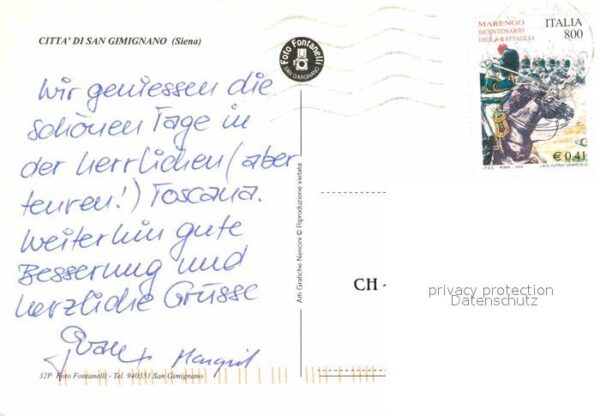 CITTA' DI SAN GIMIGNANO (Siena)
Wir geniessen die
schönen Tage in
der herrlichen (aber
teuren!) Toscana.
Weiterhin gute
Besserung und
herzliche Grüsse
Margrit
32P Foto Fontanelli - Tel. 940351 San Gimignano
Foto Fontanelli
SAN GIMIGNANO
Arti Grafiche Nencini © Riproduzione vietata
MARENGO
BICENTENARIO
DELLA BATTAGLIA
ITALIA
800
€ 0,41
CH -
privacy protection
Datenschutz